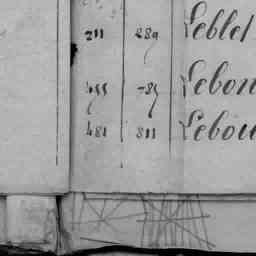 211 289 Leblet
455 785 Lebon
481 811 Lebou